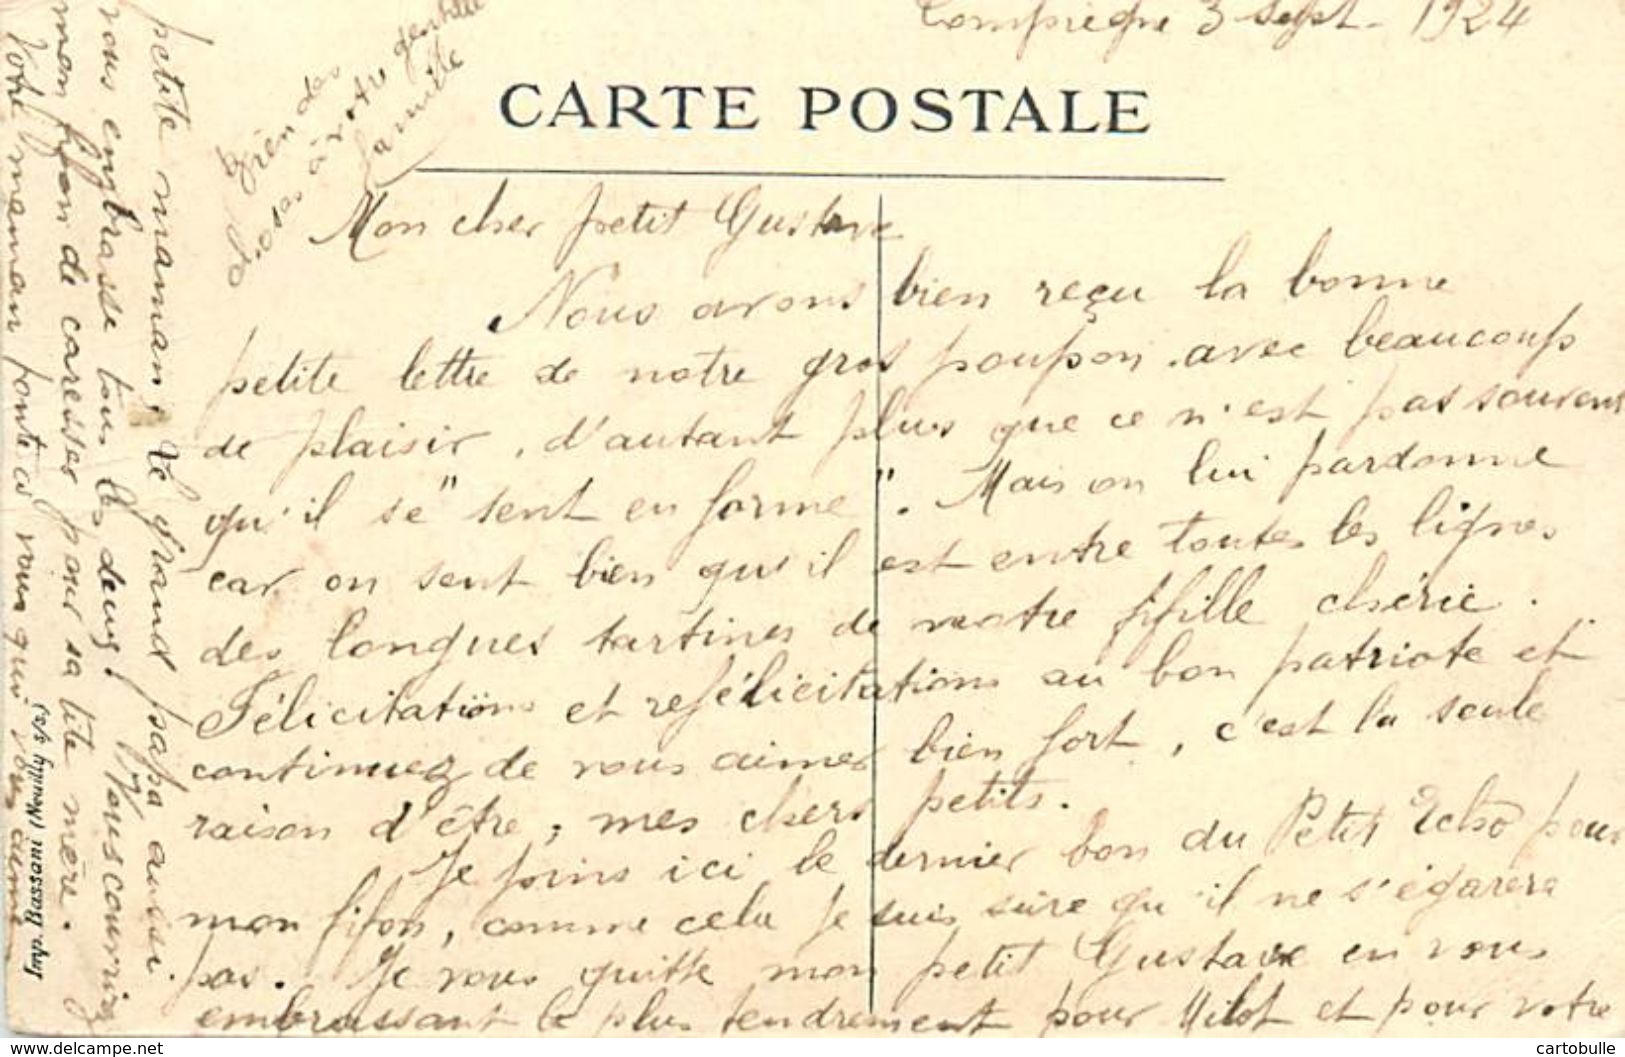 Compiègne 3 Sept. 1924
CARTE POSTALE
Mon cher petit Gustave
Nous avons bien reçu la bonne
petite lettre de notre gros poupon avec beaucoup
de plaisir, d'autant plus que ce n'est pas souvent
qu'il se "sent en forme". Mais on lui pardonne
car on sent bien qu'il est entre toutes les lignes
des longues tartines de notre fifille chérie.
Félicitations et refélicitations au bon patriote et
continuez de vous aimer bien fort, c'est la seule
raison d'être, mes chers petits.
Je joins ici le dernier bon du Petit Echo pour
mon fifon, comme cela je suis sûre qu'il ne s'égarera
pas. Je vous quitte mon petit Gustave en vous
embrassant le plus tendrement pour Milot et pour votre
petite maman. Le grand papa aussi
vous embrasse tous les deux.
mon fifon de caresser pour sa tite mère.
Votre maman vous qui vous aime
Bien des
choses à votre gentille
famille
Imp. Bassom (Neuilly s/s)
cartobulle
www.delcampe.net